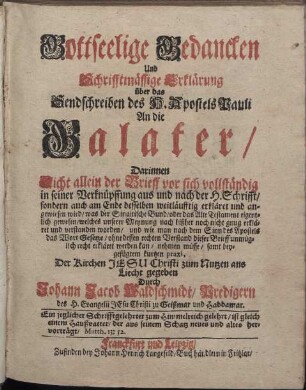 Gottseelige Gedancken
Und
Schrifftmässige Erklärung
über das
Sendschreiben des H. Apostels Pauli
An die
Galater/
Darinnen
Nicht allein der Brief vor sich vollständig
in seiner Verknüpfung aus und nach der H. Schrifft/
sondern auch am Ende desselben weitläufftig erkläret und an-
gewiesen wird/ was der Sinaitische Bund/ oder das Alte Testament eigent-
lich gewesen/ welches unserer Meynung nach bißher noch nicht genug erklä-
ret und verstanden worden/ und wie man nach dem Sinn des Apostels
das Wort Gesetze/ ohne dessen rechten Verstand dieser Brief unmög-
lich recht erkläret werden kan/ nehmen müsse/ samt bey-
gefügtem kurtzen praxi.
Der Kirchen JESU Christi zum Nutzen ans
Liecht gegeben
Durch
Johann Jacob Waldschmidt/ Predigern
des H. Evangelii JEsu Christi zu Geißmar und Haddamar.
Ein jeglicher Schrifftgelehrter zum Himmelreich gelehrt/ ist gleich
einem Haußvatter/ der aus seinem Schatz neues und altes her-
vorträgt/ Matth. 13: 52.
Franckfurt und Leipzig/
Zu finden bey Johann Henrich Langefeld/ Buchhändl. in Fritzlar/